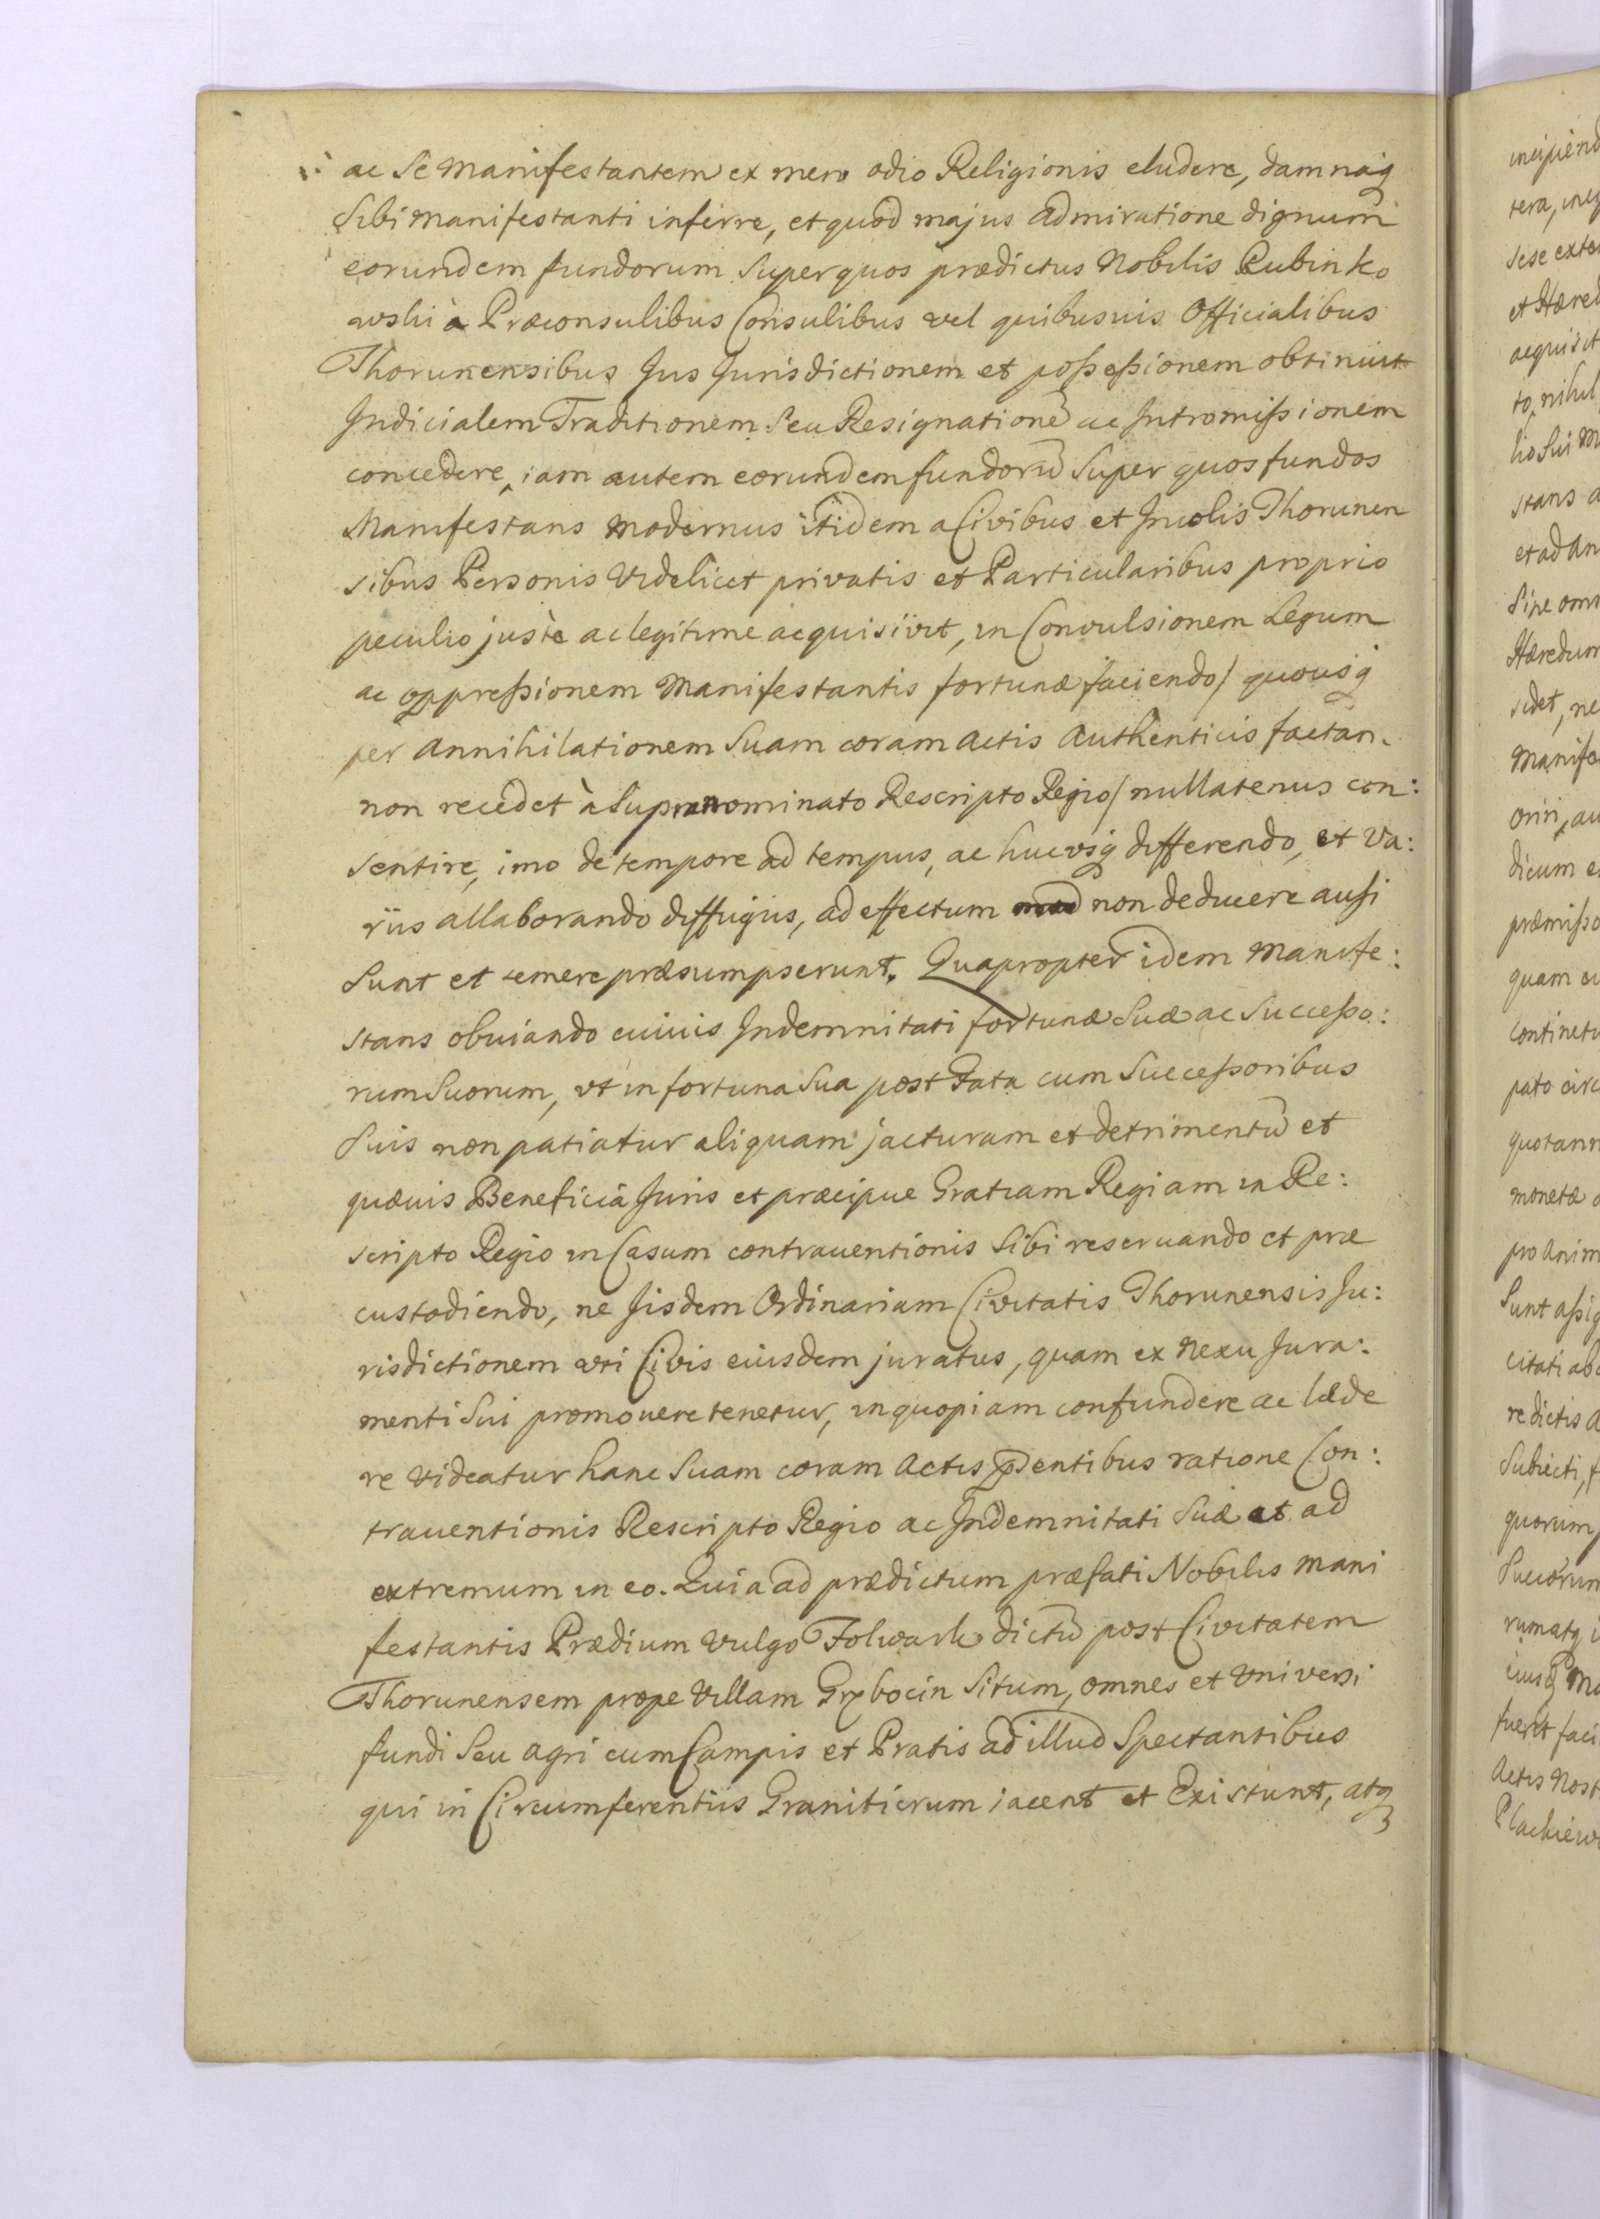 ac Se Manifestantem ex mero odio Religionis eludere, damnaq
Sibi Manifestanti inferre, et quod majus admiratione dignum
eorundem fundorum Super quos prædictus Nobilis Rubinko
wski à Præconsulibus Consulibus vel quibusuis Officialibus
Thorunensibus Jus Jurisdictionem et possessionem obtinuit
Judicialem Traditionem Seu Resignationē ac Intromissionem
concedere, iam autem eorundem fundorū Super quos fundos
Manifestans modernus itidem a Civibus et Incolis Thorunen
sibus Personis Videlicet privatis et Particularibus proprio
peculio justè ac legitime acquisivit, in Convulsionem Legum
ac oppressionem Manifestantis fortunæ faciendo/ quousq
per Annihilationem Suam coram Actis Authenticis factan.
non recedet à Supranominato Rescripto Regio/ nullatenus con:
sentire, imo de tempore ad tempus, ac hucusq differendo, et Va:
riis allaborando diffugiis, ad effectum non deducere ausi
Sunt et temere præsumpserunt. Quapropter idem Manife:
stans obuiando cuiuis Indemnitati fortunæ Suæ ac Successo:
rum Suorum, vt in fortuna Sua post Fata cum Successoribus
Suis non patiatur aliquam jacturam et detrimentū et
quæuis Beneficia Juris et præcipue Gratiam Regiam in Re:
scripto Regio in Casum contrauentionis Sibi reseruando et præ
custodiendo, ne Iisdem Ordinariam Civitatis Thorunensis Ju:
risdictionem vti Civis eiusdem juratus, quam ex Nexu Jura:
menti Sui promouere tenetur, in quopiam confundere ac læde
re videatur hanc Suam coram Actis pñsentibus ratione Con:
trauentionis Rescripto Regio ac Indemnitati Suæ at ad
extremum in eo. Quia ad prædictum præfati Nobilis Mani
festantis Prædium Vulgo Folwark dictū post Civitatem
Thorunensem prope Villam Grzbocin Situm, omnes et Vniversi
fundi Seu agri cum Campis et Pratis ad illud Spectantibus
qui in Circumferentiis Granitierum iacent et Existunt, atq